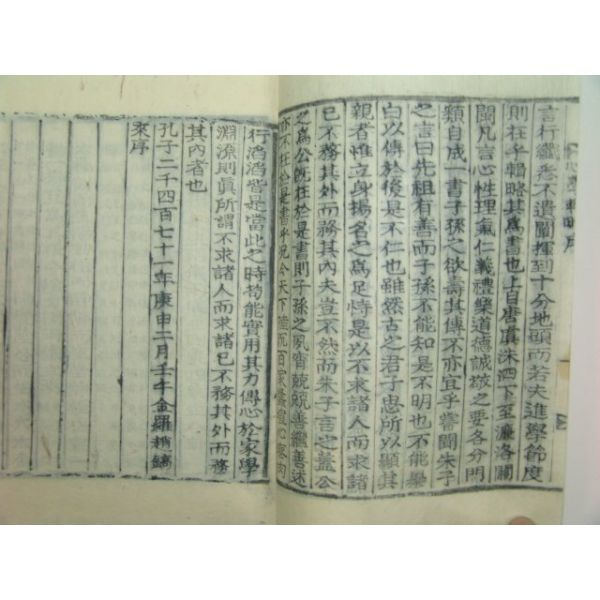 言行纖悉不遺闡揮到十分地頭而若夫進學節度
則在乎輯略其爲書也上自唐虞洙泗下至濂洛關
閩凡言心性理氣仁義禮樂道德誠敬之要各分門
類自成一書子孫之欲壽其傳不亦宜乎嘗聞朱子
之言曰先祖有善而子孫不能知是不明也不能
白以傳於後是不仁也雖然古之君子思所以顯其
親者惟立身揚名之爲足恃是以不求諸人而求諸
已不務其外而務其內夫豈不然而朱子言之蓋公
之爲公旣在於是書則子孫之夙宵兢兢善繼善述
亦不在於是書乎況今天下陸沉百家
行滔滔皆是當此之時苟能實用其力傳心於家學
淵源則眞所謂不求諸人而求諸已不務其外而務
其內者也
孔子二千四百七十一年庚申二月壬午金羅趙鎬
來序